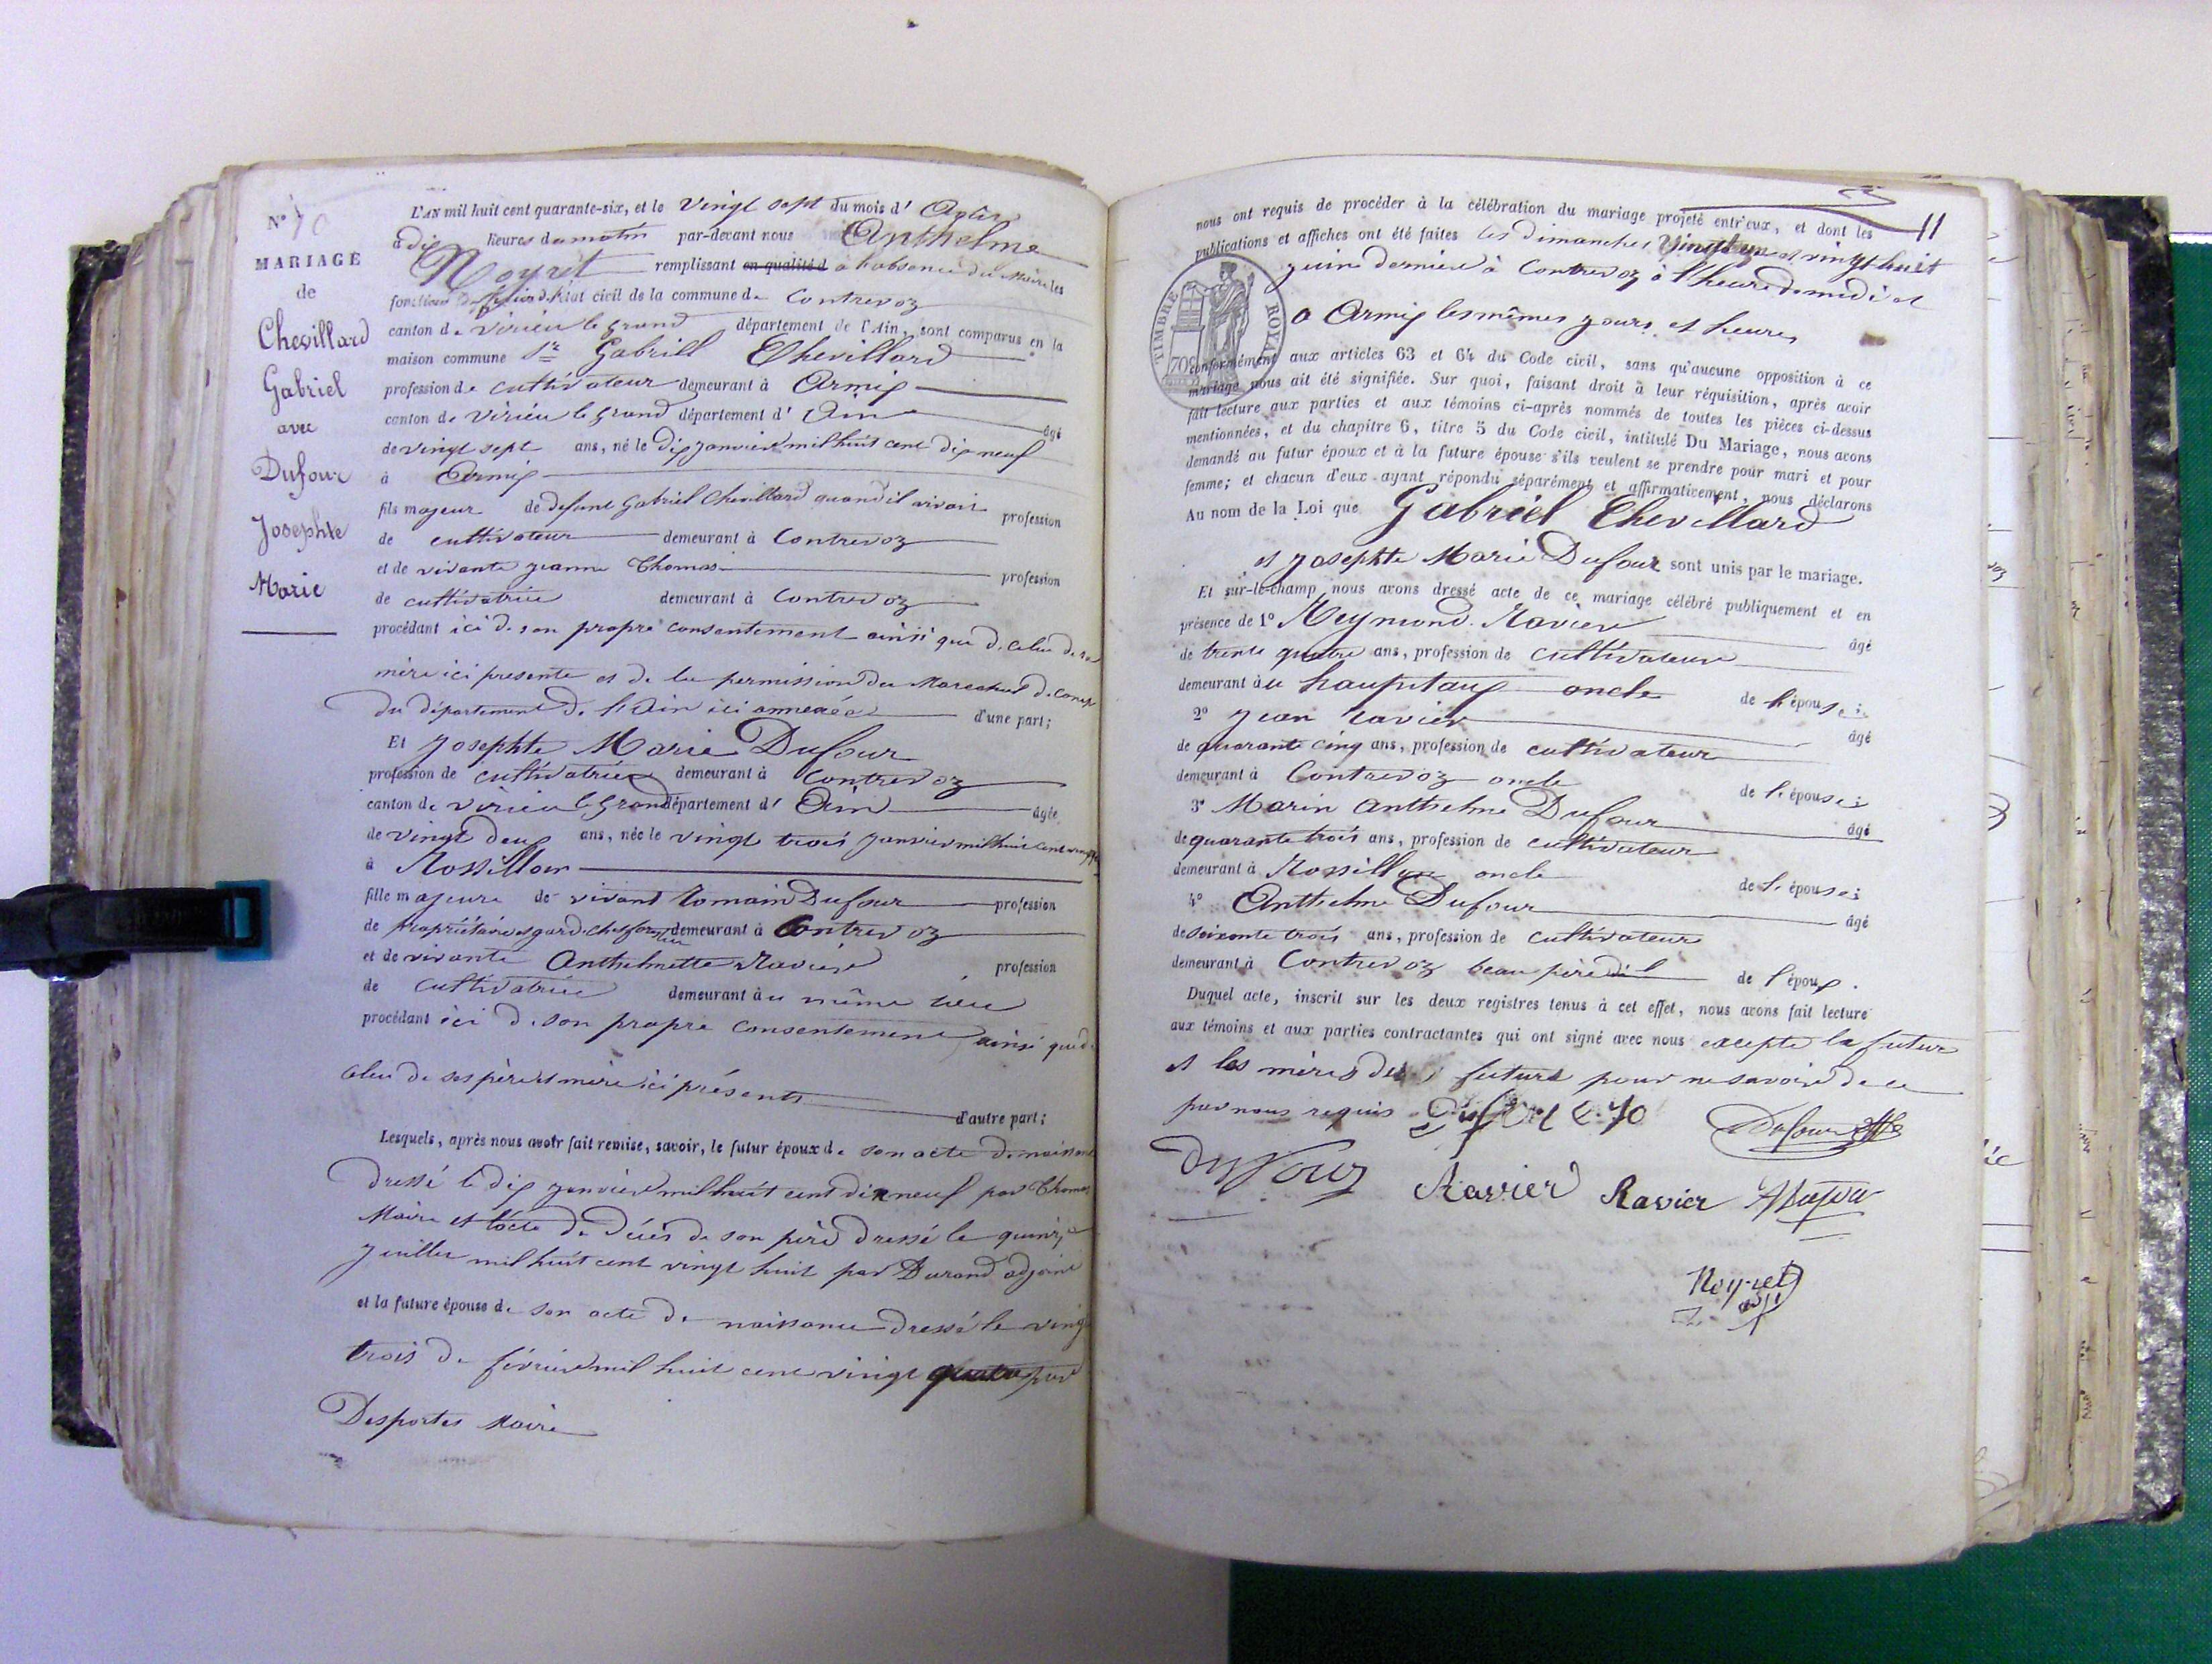 N° 10
MARIAGE
de
Chevillard
Gabriel
avec
Dufour
Josephte
Marie
L'AN mil huit cent quarante-six, et le vingt sept du mois d'
à dix heures du matin par-devant nous Anthelme
Noyret remplissant en qualité d à l'absence du maire les
fonctions d'officier de l'état civil de la commune de Contrevoz
canton de virieu le grand département de l'Ain, sont comparus en la
maison commune Sr Gabriel Chevillard
profession de cultivateur demeurant à Armix
canton de virieu le grand département d' Ain âgé
de vingt sept ans, né le dix janvier mil huit cent dix neuf
à Armix
fils majeur de defunt Gabriel Chevillard quand il vivait profession
de cultivateur demeurant à Contrevoz
et de vivante jeanne Thomas profession
de cultivatrice demeurant à Contrevoz
procédant ici de son propre consentement ainsi que de celui de sa
mère ici presente et de la permission du Marechal de camp
du département de l'Ain ici annexée d'une part;
Et Josephte Marie Dufour
profession de cultivatrice demeurant à Contrevoz
canton de virieu le grand département d' Ain âgée
de vingt deux ans, née le vingt trois janvier mil huit cent vingt
à Rossillon
fille majeure de vivant Romain Dufour profession
de propriétaire et garde chef forestier demeurant à Contrevoz
et de vivante Anthelmette Ravier profession
de cultivatrice demeurant au même lieu
procédant ici de son propre consentement ainsi que de
celui de ses père et mère ici présents
d'autre part;
Lesquels, après nous avoir fait remise, savoir, le futur époux de son acte de naissance
dressé le dix janvier mil huit cent dix neuf par Thomas
Maire et l'acte de décès de son père dressé le quinze
juillet mil huit cent vingt huit par Durand adjoint
et la future épouse de son acte de naissance dressé le vingt
trois de février mil huit cent vingt quatre par
Desportes Maire
11
nous ont requis de procéder à la célébration du mariage projeté entr'eux, et dont les
publications et affiches ont été faites les dimanches vingt un et vingt huit
juin dernier à Contrevoz à l'heure de midi et
a Armix les mêmes jours et heures
TIMBRE ROYAL
70c
conformément aux articles 63 et 64 du Code civil, sans qu'aucune opposition à ce
mariage nous ait été signifiée. Sur quoi, faisant droit à leur réquisition, après avoir
fait lecture aux parties et aux témoins ci-après nommés de toutes les pièces ci-dessus
mentionnées, et du chapitre 6, titre 5 du Code civil, intitulé Du Mariage, nous avons
demandé au futur époux et à la future épouse s'ils veulent se prendre pour mari et pour
femme; et chacun d'eux ayant répondu séparément et affirmativement, nous déclarons
Au nom de la Loi que Gabriel Chevillard
et Josephte Marie Dufour sont unis par le mariage.
Et sur-le-champ nous avons dressé acte de ce mariage célébré publiquement et en
présence de 1° Reymond Ravier âgé
de trente quatre ans, profession de cultivateur
demeurant au oncle de l'épouse;
2° Jean Ravier âgé
de quarante cinq ans, profession de cultivateur
demeurant à Contrevoz oncle de l'épouse;
3° Marin Anthelme Dufour âgé
de quarante trois ans, profession de cultivateur
demeurant à Rossillon oncle de l'épouse;
4° Anthelme Dufour âgé
de soixante trois ans, profession de cultivateur
demeurant à Contrevoz beau père de l'époux.
Duquel acte, inscrit sur les deux registres tenus à cet effet, nous avons fait lecture
aux témoins et aux parties contractantes qui ont signé avec nous excepté la future
et les mères des futurs pour ne savoir de ce
par nous requis
Dufour
dufour Ravier Ravier
Noyret